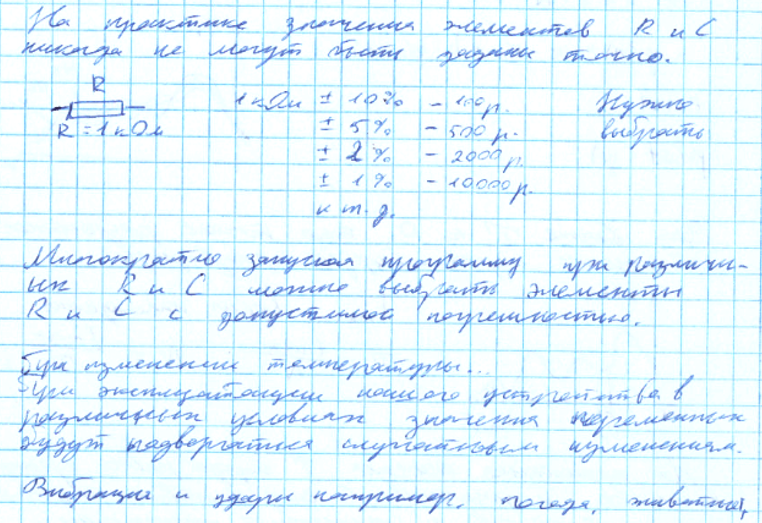 На практике значения элементов R и C
никогда не могут быть заданы точно.
R
1 кОм ± 10% - 100 р. Нужно
R = 1 кОм ± 5% - 500 р. выбрать
± 2% - 2000 р.
± 1% - 10000 р.
и т. д.
Многократно запуская программу при различн-
ых R и C можно выбрать элементы
R и C с допустимой погрешностью.
При изменении температуры...
При эксплуатации нашего устройства в
различных условиях значения переменных
будут подвергаться случайным изменениям.
Вибрации и удары например, погода, животные,